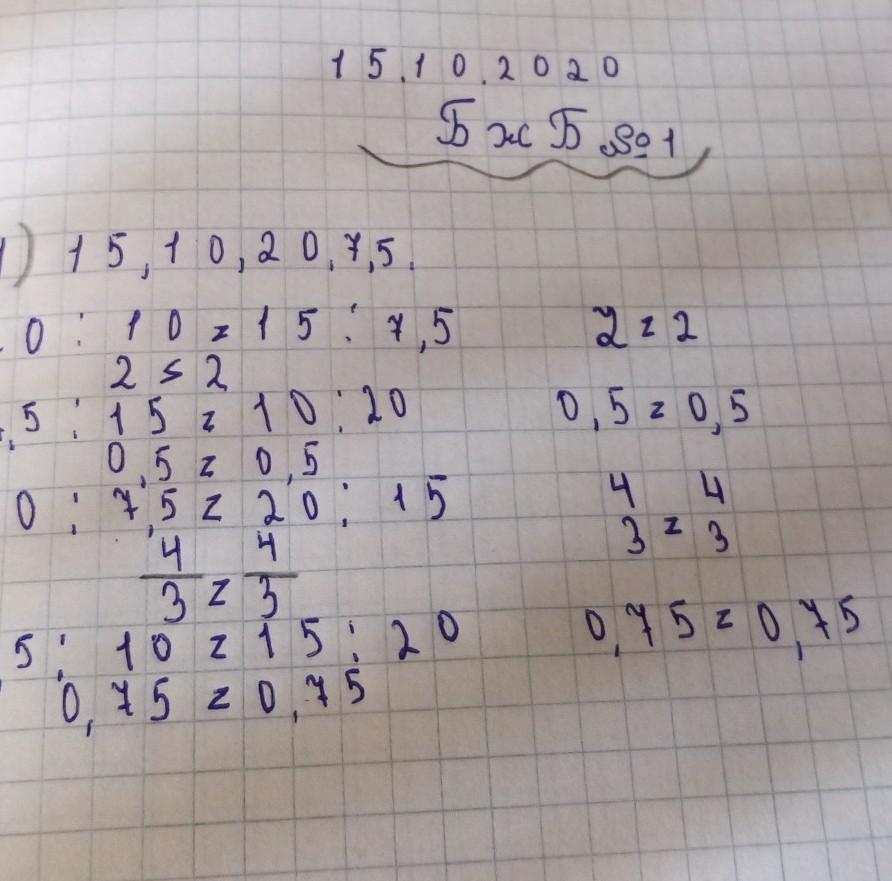 15.10.2020
БжБ №1
1) 15, 10, 20, 7,5.
0 : 10 = 15 : 7,5 2 = 2
2 = 2
,5 : 15 = 10 : 20 0,5 = 0,5
0,5 = 0,5
0 : 7,5 = 20 : 15 4 4
4 4 3 = 3
3 = 3
5 : 10 = 15 : 20 0,75 = 0,75
0,75 = 0,75